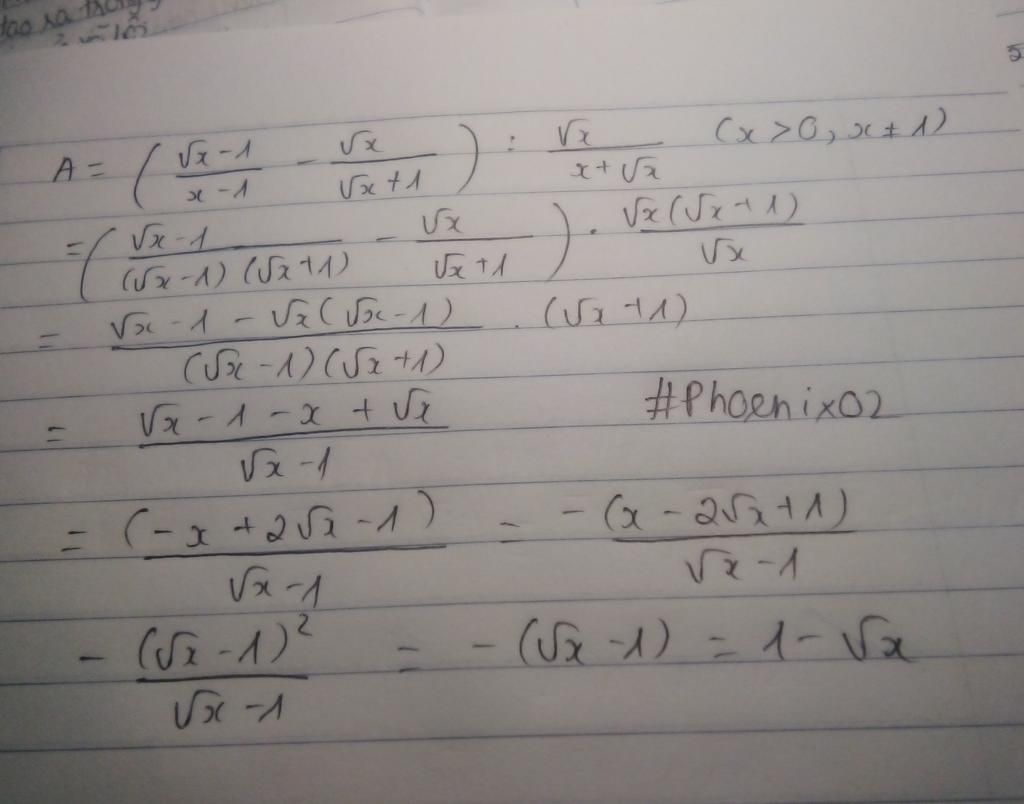 tạo ra trong
A = ( (√x - 1)/(x - 1) - √x/(√x + 1) ) : √x/(x + √x) (x > 0, x ≠ 1)
= ( (√x - 1)/((√x - 1)(√x + 1)) - √x/(√x + 1) ) . √x(√x + 1)/√x
= (√x - 1 - √x(√x - 1))/((√x - 1)(√x + 1)) . (√x + 1)
= (√x - 1 - x + √x)/(√x - 1) #Phoenix02
= (-x + 2√x - 1)/(√x - 1) = -(x - 2√x + 1)/(√x - 1)
- (√x - 1)²/(√x - 1) = -(√x - 1) = 1 - √x